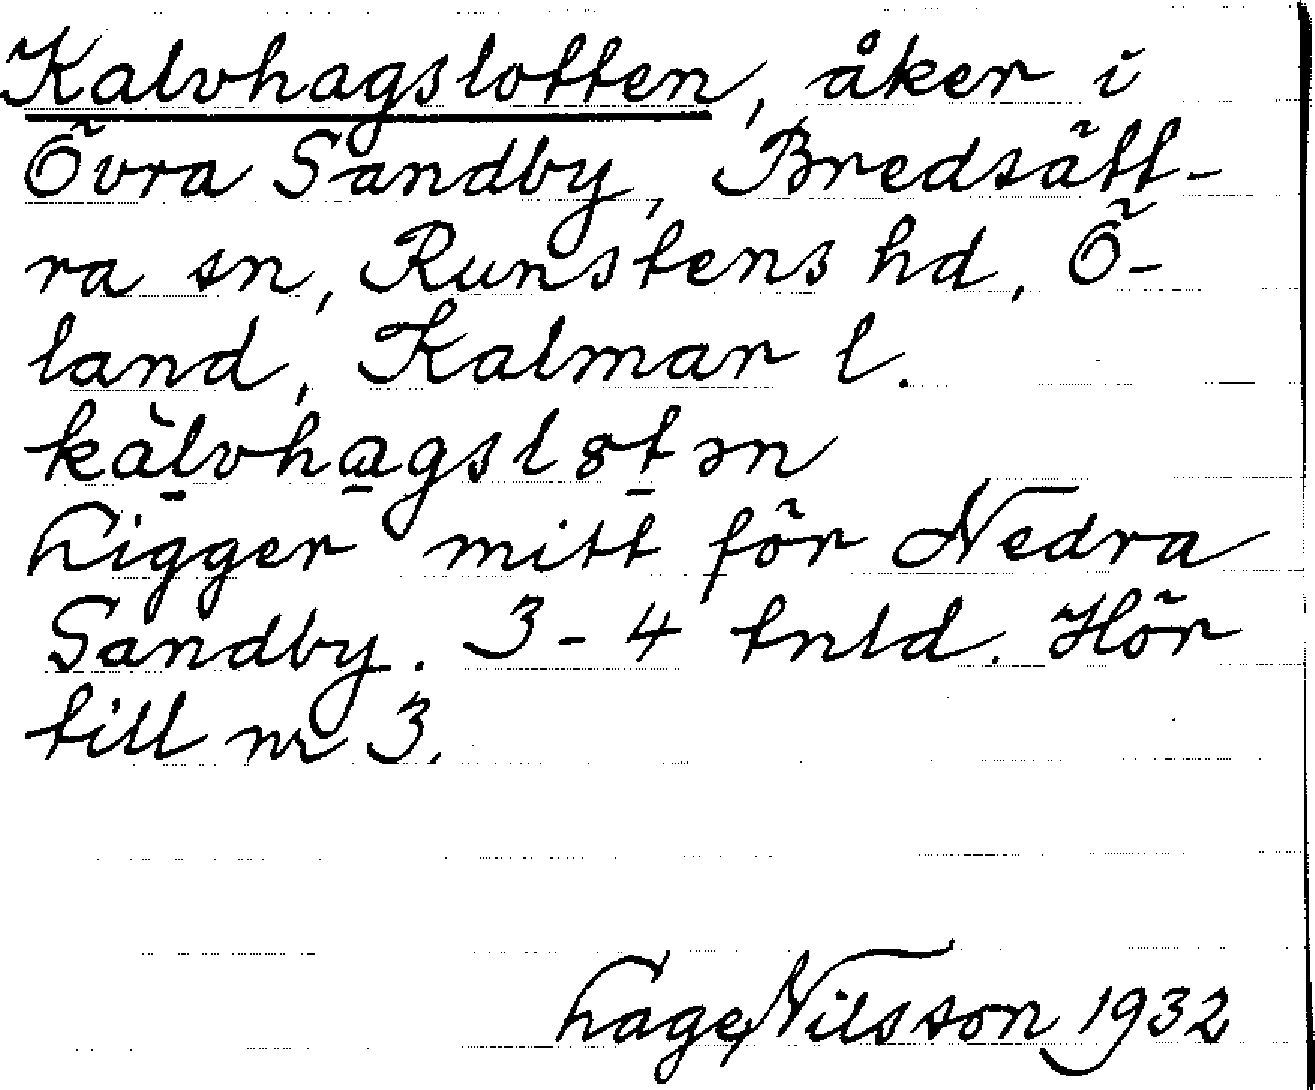 Kalvhagslotten, åker i
Övra Sandby, Bredsätt-
ra sn, Runstens hd, Ö-
land, Kalmar l.
kàl̠vha̠gslo̠t̠ən
Ligger mitt för Nedra
Sandby. 3-4 tnld. Hör
till nr 3.
Lage Nilsson 1932